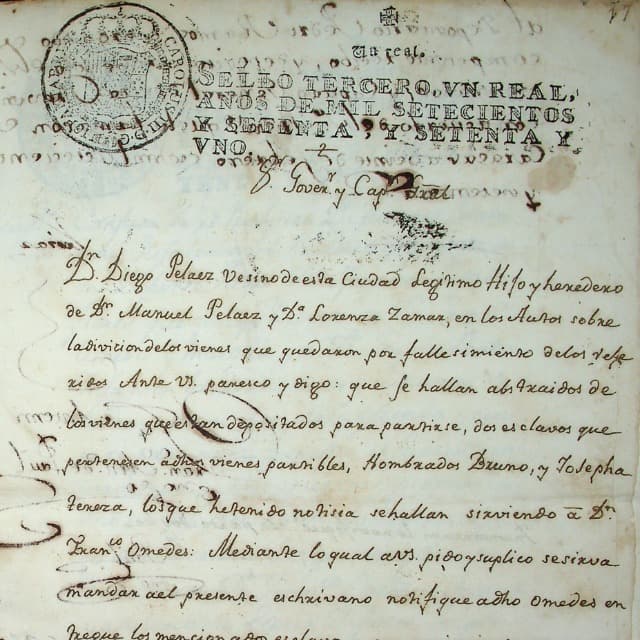 Un real.
SELLO TERCERO, VN REAL,
AÑOS DE MIL SETECIENTOS
Y SETENTA, Y SETENTA Y
VNO.
Sr. Goverr. y Capn. Gral
Dn. Diego Pelaez Vesino de esta Ciudad Legitimo Hijo y heredero
de Dn. Manuel Pelaez y Da. Lorenza Zamar, en los Autos sobre
la divicion de los vienes que quedaron por fallesimiento de los refe
ridos Ante Vs. paresco y digo: que se hallan abstraidos de
los vienes que estan depositados para partirse, dos esclavos que
pertenesen a dhos vienes partibles, Nombrados Bruno, y Josepha
tereza, los que he tenido notisia se hallan sirviendo â Dn.
Franco. Omedes: Mediante lo qual a Vs. pido y suplico se sirva
mandar a el presente escrivano notifique a dho Omedes en
tregue los mencionados esclavo